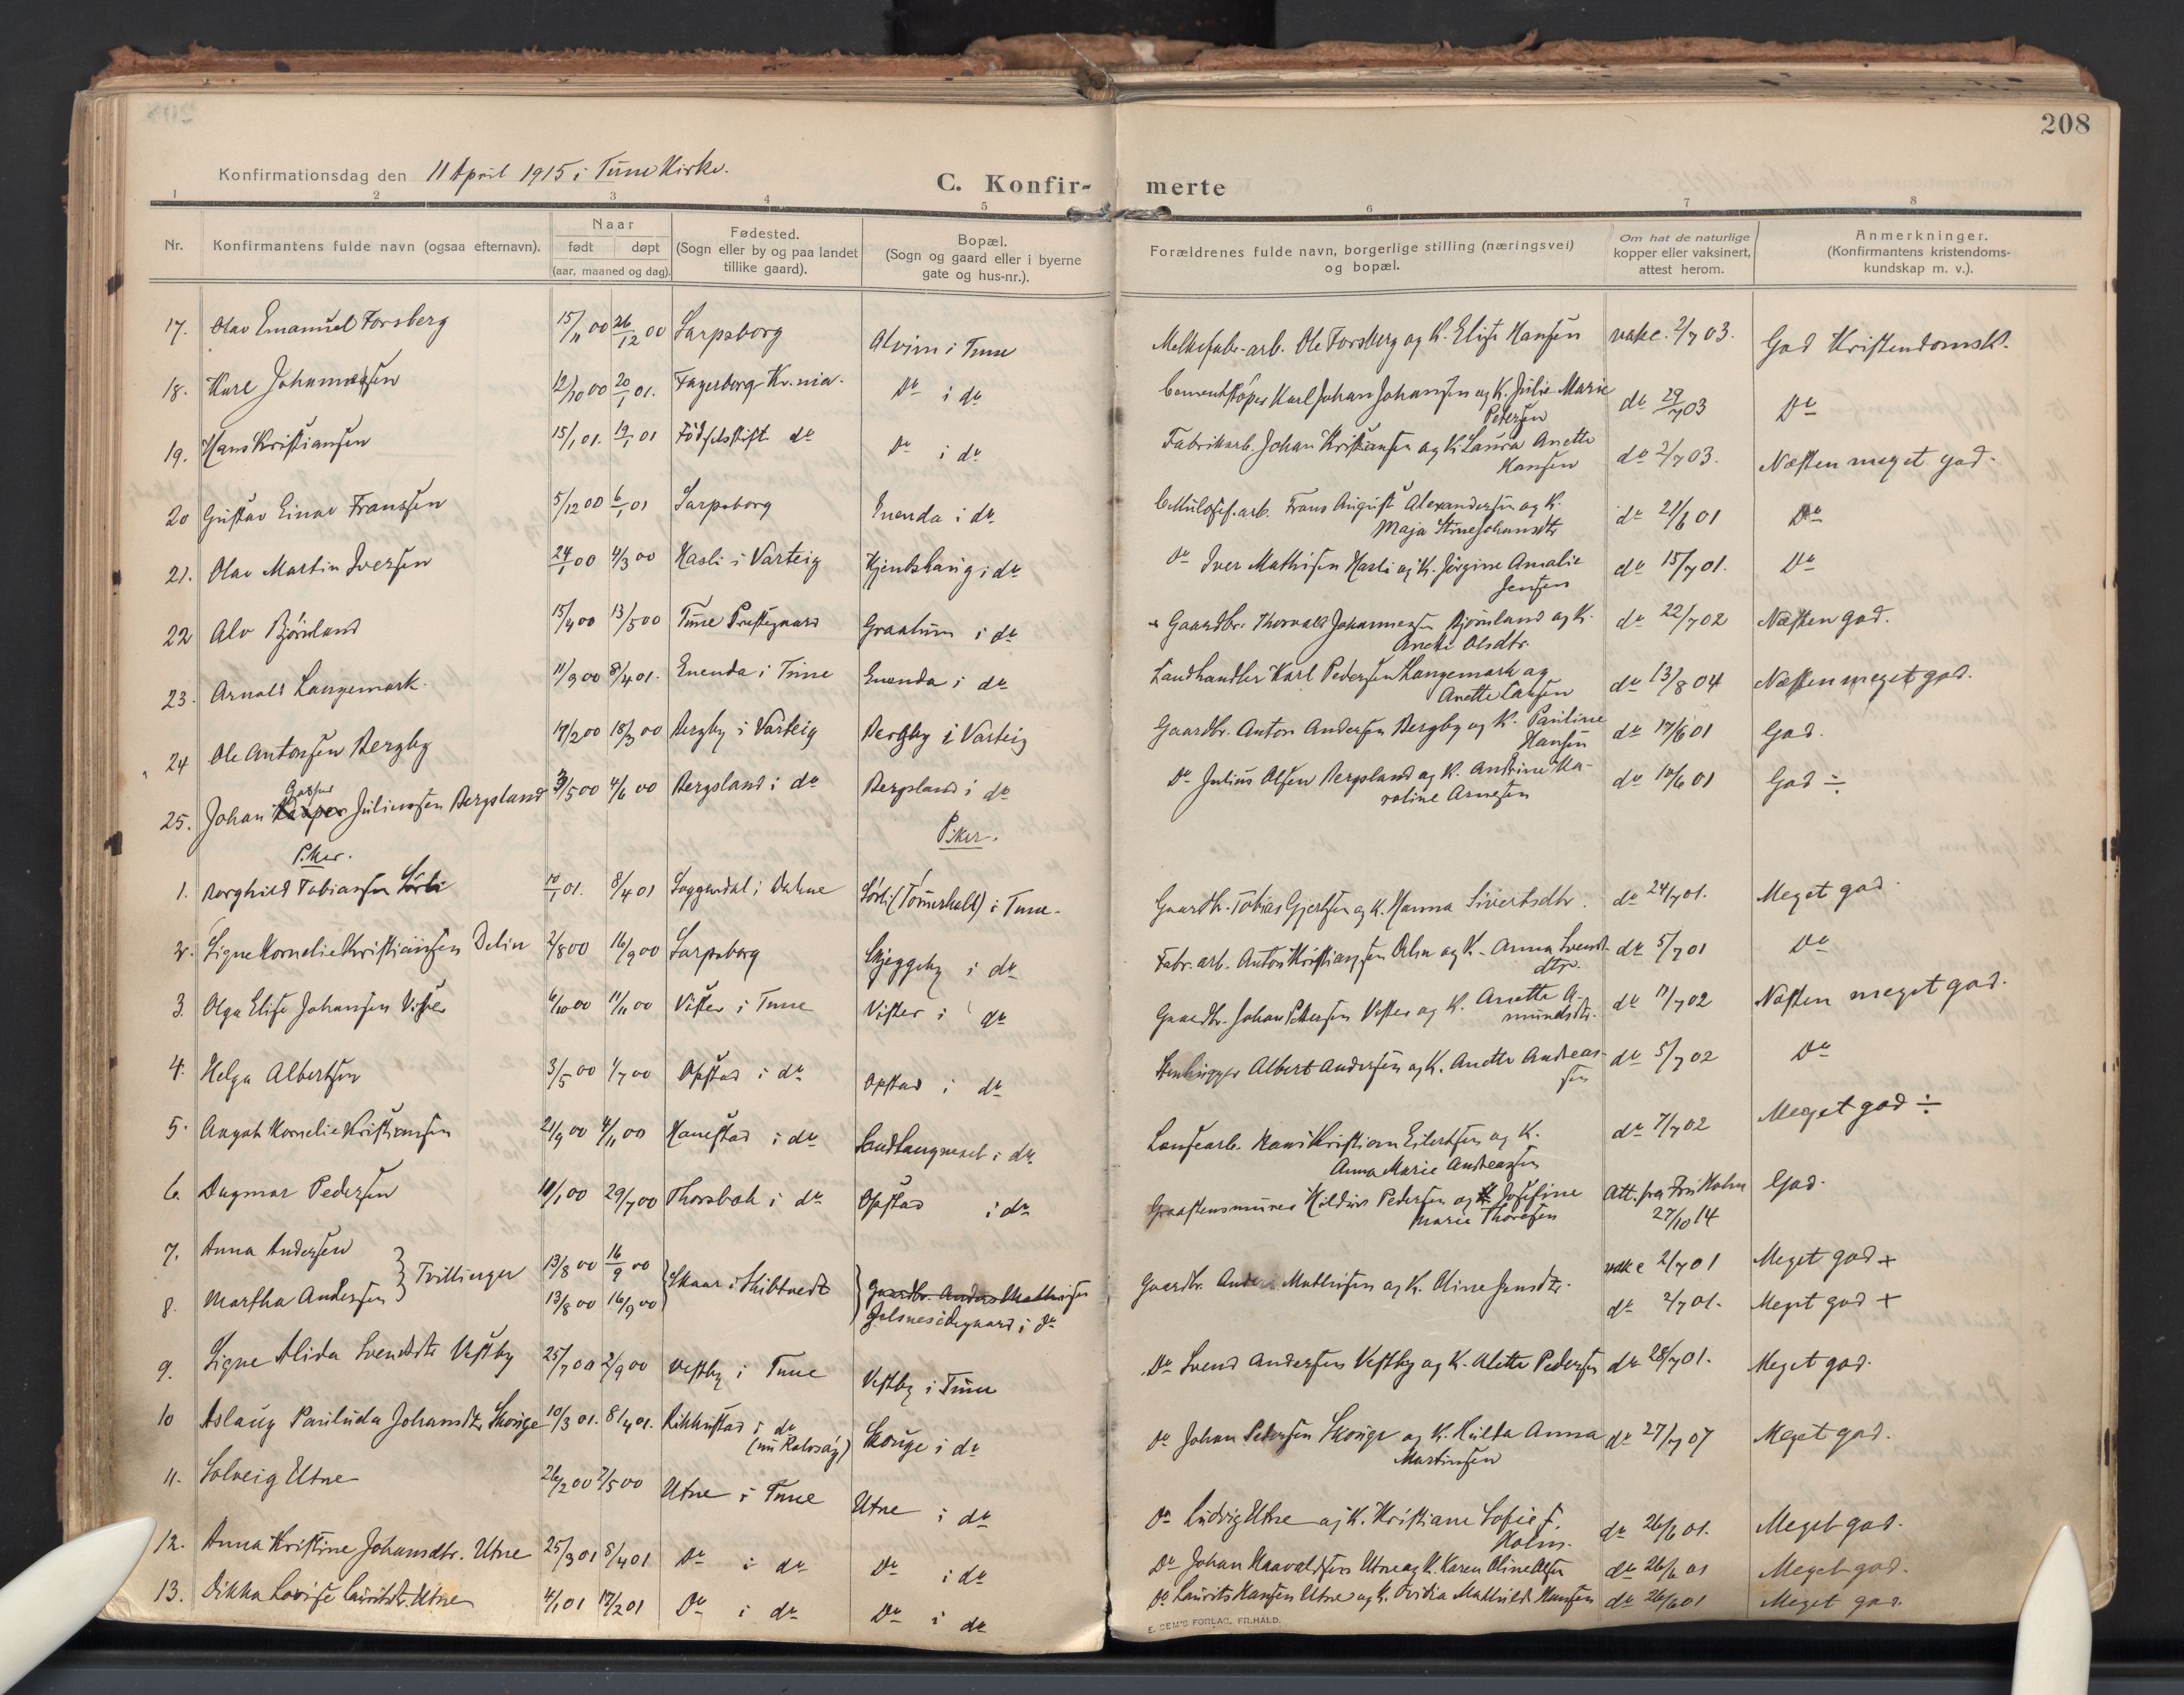 208
Konfirmationsdag den 11 April 1915 i Tune Kirke.
C. Konfir- merte
1 2 3 4 5 6 7 8
Nr. Konfirmantens fulde navn (ogsaa efternavn). Naar født døpt (aar, maaned og dag). Fødested. (Sogn eller by og paa landet tillike gaard). Bopæl. (Sogn og gaard eller i byerne gate og hus-nr.). Forældrenes fulde navn, borgerlige stilling (næringsvei) og bopæl. Om hat de naturlige kopper eller vaksinert, attest herom. Anmerkninger. (Konfirmantens kristendoms- kundskap m. v.).
17. Olav Emanuel Forsberg 15/11 00 26/12 00 Sarpsborg Alvim i Tune Melkefabr-arb. Ole Forsberg og K. Elise Hansen vakc. 2/7 03. God Kristendomsk.
18. Karl Johannessen 12/10 00 20/1 01. Fagerborg Kr.nia. Do i do Cementstöper Karl Johan Johansen og K. Julie Marie Petersen do 29/7 03 Do
19. Hans Kristiansen 15/1 01. 19/1 01 Födselsstift. do Do i do Fabrikarb. Johan Kristiansen og K. Laura Anette Hansen do 2/7 03. Næsten meget god.
20 Gustav Einar Franssen 5/12 00 6/1 01 Sarpsborg Enenda i do. Cellulosef.arb. Frans August Alexandersen og K. Maja Stina Johansdtr do 21/6 01 Do
21. Olav Martin Iversen 24/1 00 4/3 00 Hasli i Varteig Hjentshaug i do Do Iver Mathisen Hasli og K. Jörgine Amalie Jensen do 15/7 01. Do
22 Alv Björnland 15/4 00 13/5 00 Tune Prestegaard Graatum i do Gaardbr. Thorvald Johannessen Björnland og K. Anette Olsdtr. do 22/7 02 Næsten god.
23. Arnold Langemark. 11/9 00 8/4 01. Enenda i Tune Enenda i do Landhandler Karl Pedersen Langemark og Anette Larsen do 13/8 04 Næsten meget god.
24 Ole Antonsen Bergby 17/2 00 18/3 00 Bergby i Varteig Bergby i Varteig Gaardbr. Anton Andersen Bergby og K. Pauline Hansen do 17/6 01 God.
25. Johan Kasper Juliussen Bergsland 3/5 00 4/6 00 Bergsland i do Bergsland i do Do Julius Olsen Bergsland og K. Andrine Karoline Arnesen do 10/6 01 God ÷
Piker. Piker.
1. Borghild Tobiassen Sörli 10/1 01. 8/4 01 Soggendal i Dalene Sörli (Tomerholt) i Tune. Gaardbr. Tobias Gjertsen og K. Hanna Sivertsdtr. do 24/7 01. Meget god.
2. Signe Kornelie Kristiansen Delin 2/8 00 16/9 00 Sarpsborg Skjeggeby i do Fabr. arb. Anton Kristiansen Delin og K. Anna Svendsdtr. do 5/7 01 Do
3. Olga Elise Johansen Vister 6/10 00 11/11 00 Vister i Tune Vister i do Gaardbr. Johan Petersen Vister og K. Anette Amundsdtr. do 11/7 02 Næsten meget god.
4. Helga Albertsen 3/5 00 1/7 00 Opstad i do Opstad i do Stenhugger Albert Andersen og K. Anette Andreassen do 5/7 02 Do
5. Aagot Kornelie Kristiansen 21/9 00 4/11 00 Hanestad i do Landsangneset i do. Lensearb. Hans Kristian Eilertsen og K. Anna Marie Andreassen do 7/7 02 Meget god ÷
6. Dagmar Pedersen 11/1 00 29/7 00 Thorsbæk i do Opstad i do Graastensminer Hildur Pedersen og K Josefine Marie Thoresen Att. fra Dr. Holm 27/10 14 God.
7. Anna Andersen } Tvillinger 13/8 00 16/9 00 } Skaar i Skibtvedt } Gaardbr. Anders Mathisen Gaardbr. Anders Mathisen og K. Oline Jensdtr. vakc 2/7 01 Meget god +
8. Martha Andersen 13/8 00 16/9 00 Jelsnes ödegaard i do do 2/7 01. Meget god +
9. Signe Alida Svendsdtr Vestby 25/7 00 2/9 00 Vestby i Tune Vestby i Tune Do Svend Andersen Vestby og K. Alette Pedersen do 28/7 01. Meget god.
10 Aslaug Paulida Johansdtr Skouge 10/3 01. 8/4 01. Rikkestad i do (nu Rolvsøy) Skouge i do Do Johan Petersen Skouge og K. Hulda Anna Martinsen do 27/7 07 Meget god.
11. Solveig Utne 26/2 00 7/5 00 Utne i Tune Utne i do Do Ludvig Utne og K. Kristiane Sofie f. Holm. do 26/6 01. Meget god.
12. Anna Kristine Johansdtr. Utne 25/3 01 8/4 01 Do i do Do i do Do Johan Haavaldsen Utne og K. Karen Oline Olsen do 26/6 01 Meget god.
13. Dikka Lovise Lauritsdtr. Utne 4/1 01 17/2 01 Do i do Do i do Do Laurits Hansen Utne og K. Ovidia Mathilde Hansen do 26/6 01 Meget god.
E. SEM'S FORLAG, FR.HALD.